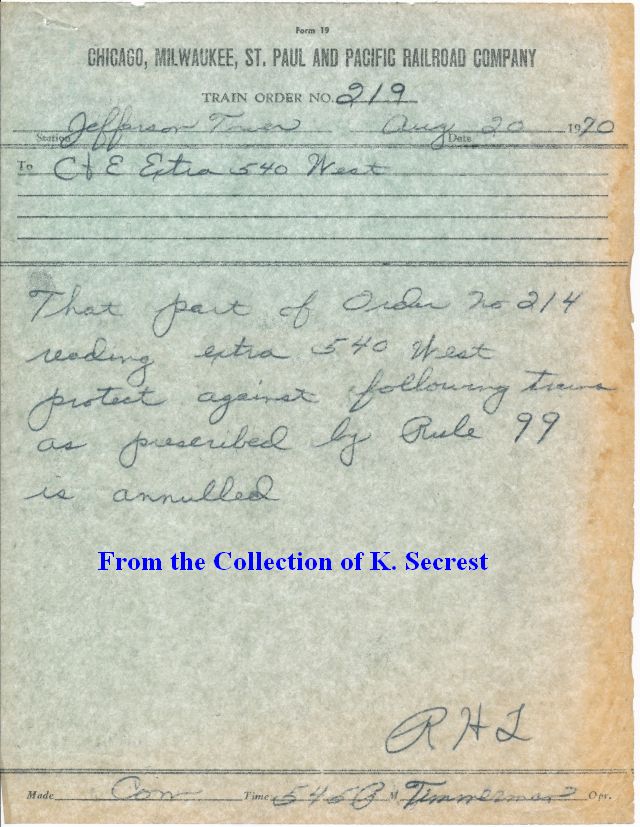 Form 19
CHICAGO, MILWAUKEE, ST. PAUL AND PACIFIC RAILROAD COMPANY
TRAIN ORDER NO. 219
Station Jefferson Tower Aug Date 20 1970
To C & E Extra 540 West
That part of Order No 214
reading extra 540 West
protect against following trains
as prescribed by Rule 99
is annulled
From the Collection of K. Secrest
R H L
Made Com Time M Timmerman Opr.